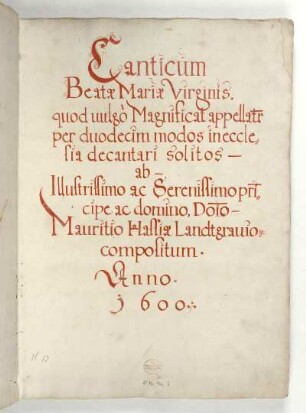 Canticum
Beatæ Mariæ Virginis.
quod uulgò Magnificat appellatr
per duodecim modos in eccle-
sia decantari solitos —
ab —
Illustrissimo ac Serenissimo prī-
cipe ac domino, Dōō —
Mauritio Hassiæ Landtgrauio
compositum.
Anno.
1600.